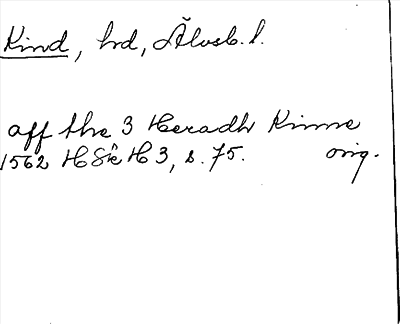 Kind, hd, Älvsb. l.
aff the 3 Heradh Kinne
1562 HSkH 3, s. 75. orig.